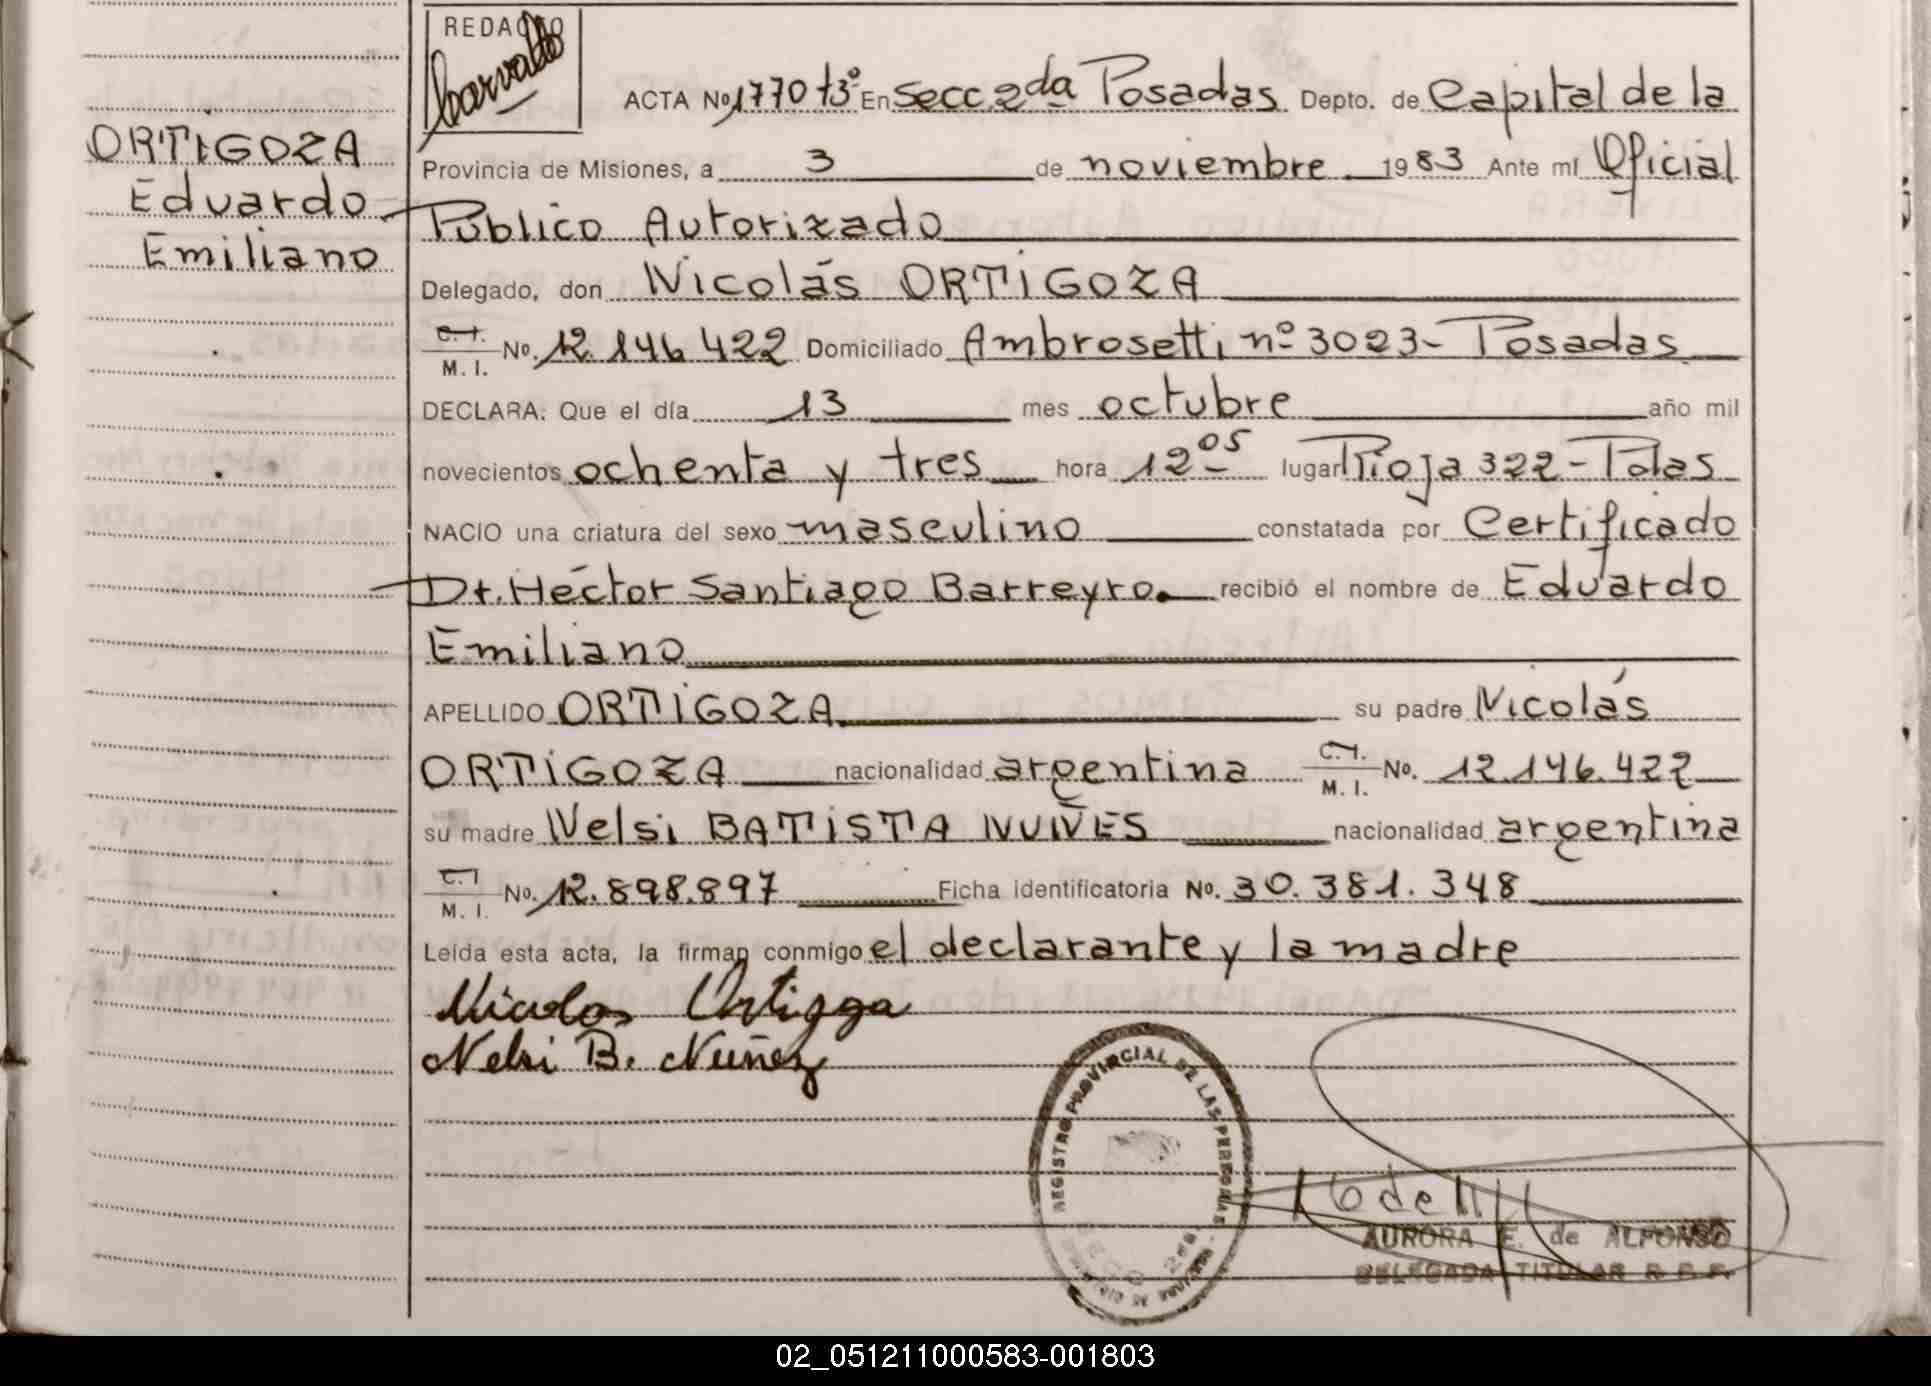 REDACTO
ACTA No 1770 tº3 En Secc. 2da Posadas Depto. de Capital de la
ORTIGOZA
Provincia de Misiones, a 3 de noviembre 1983 Ante mí Oficial
Eduardo
Público Autorizado
Emiliano
Delegado, don Nicolás ORTIGOZA
C. I. M. I. No. 12.146.422 Domiciliado Ambrosetti nº 3023- Posadas
DECLARA: Que el día 13 mes octubre año mil
novecientos ochenta y tres hora 12 05 lugar Rioja 322 - Pdas
NACIO una criatura del sexo masculino constatada por Certificado
Dr. Héctor Santiago Barreyro. recibió el nombre de Eduardo
Emiliano
APELLIDO ORTIGOZA su padre Nicolás
ORTIGOZA nacionalidad argentina C. I. M. I. No. 12.146.422
su madre Nelsi BATISTA NUÑES nacionalidad argentina
C. I. M. I. No. 12.898.897 Ficha identificatoria No. 30.381.348
Leída esta acta, la firman conmigo el declarante y la madre
Nicolas Ortigoza
Nelsi B. Nuñez
REGISTRO PROVINCIAL DE LAS PERSONAS
AURORA E. de ALFONSO
DELEGADA TITULAR R. P. P.
02_051211000583-001803